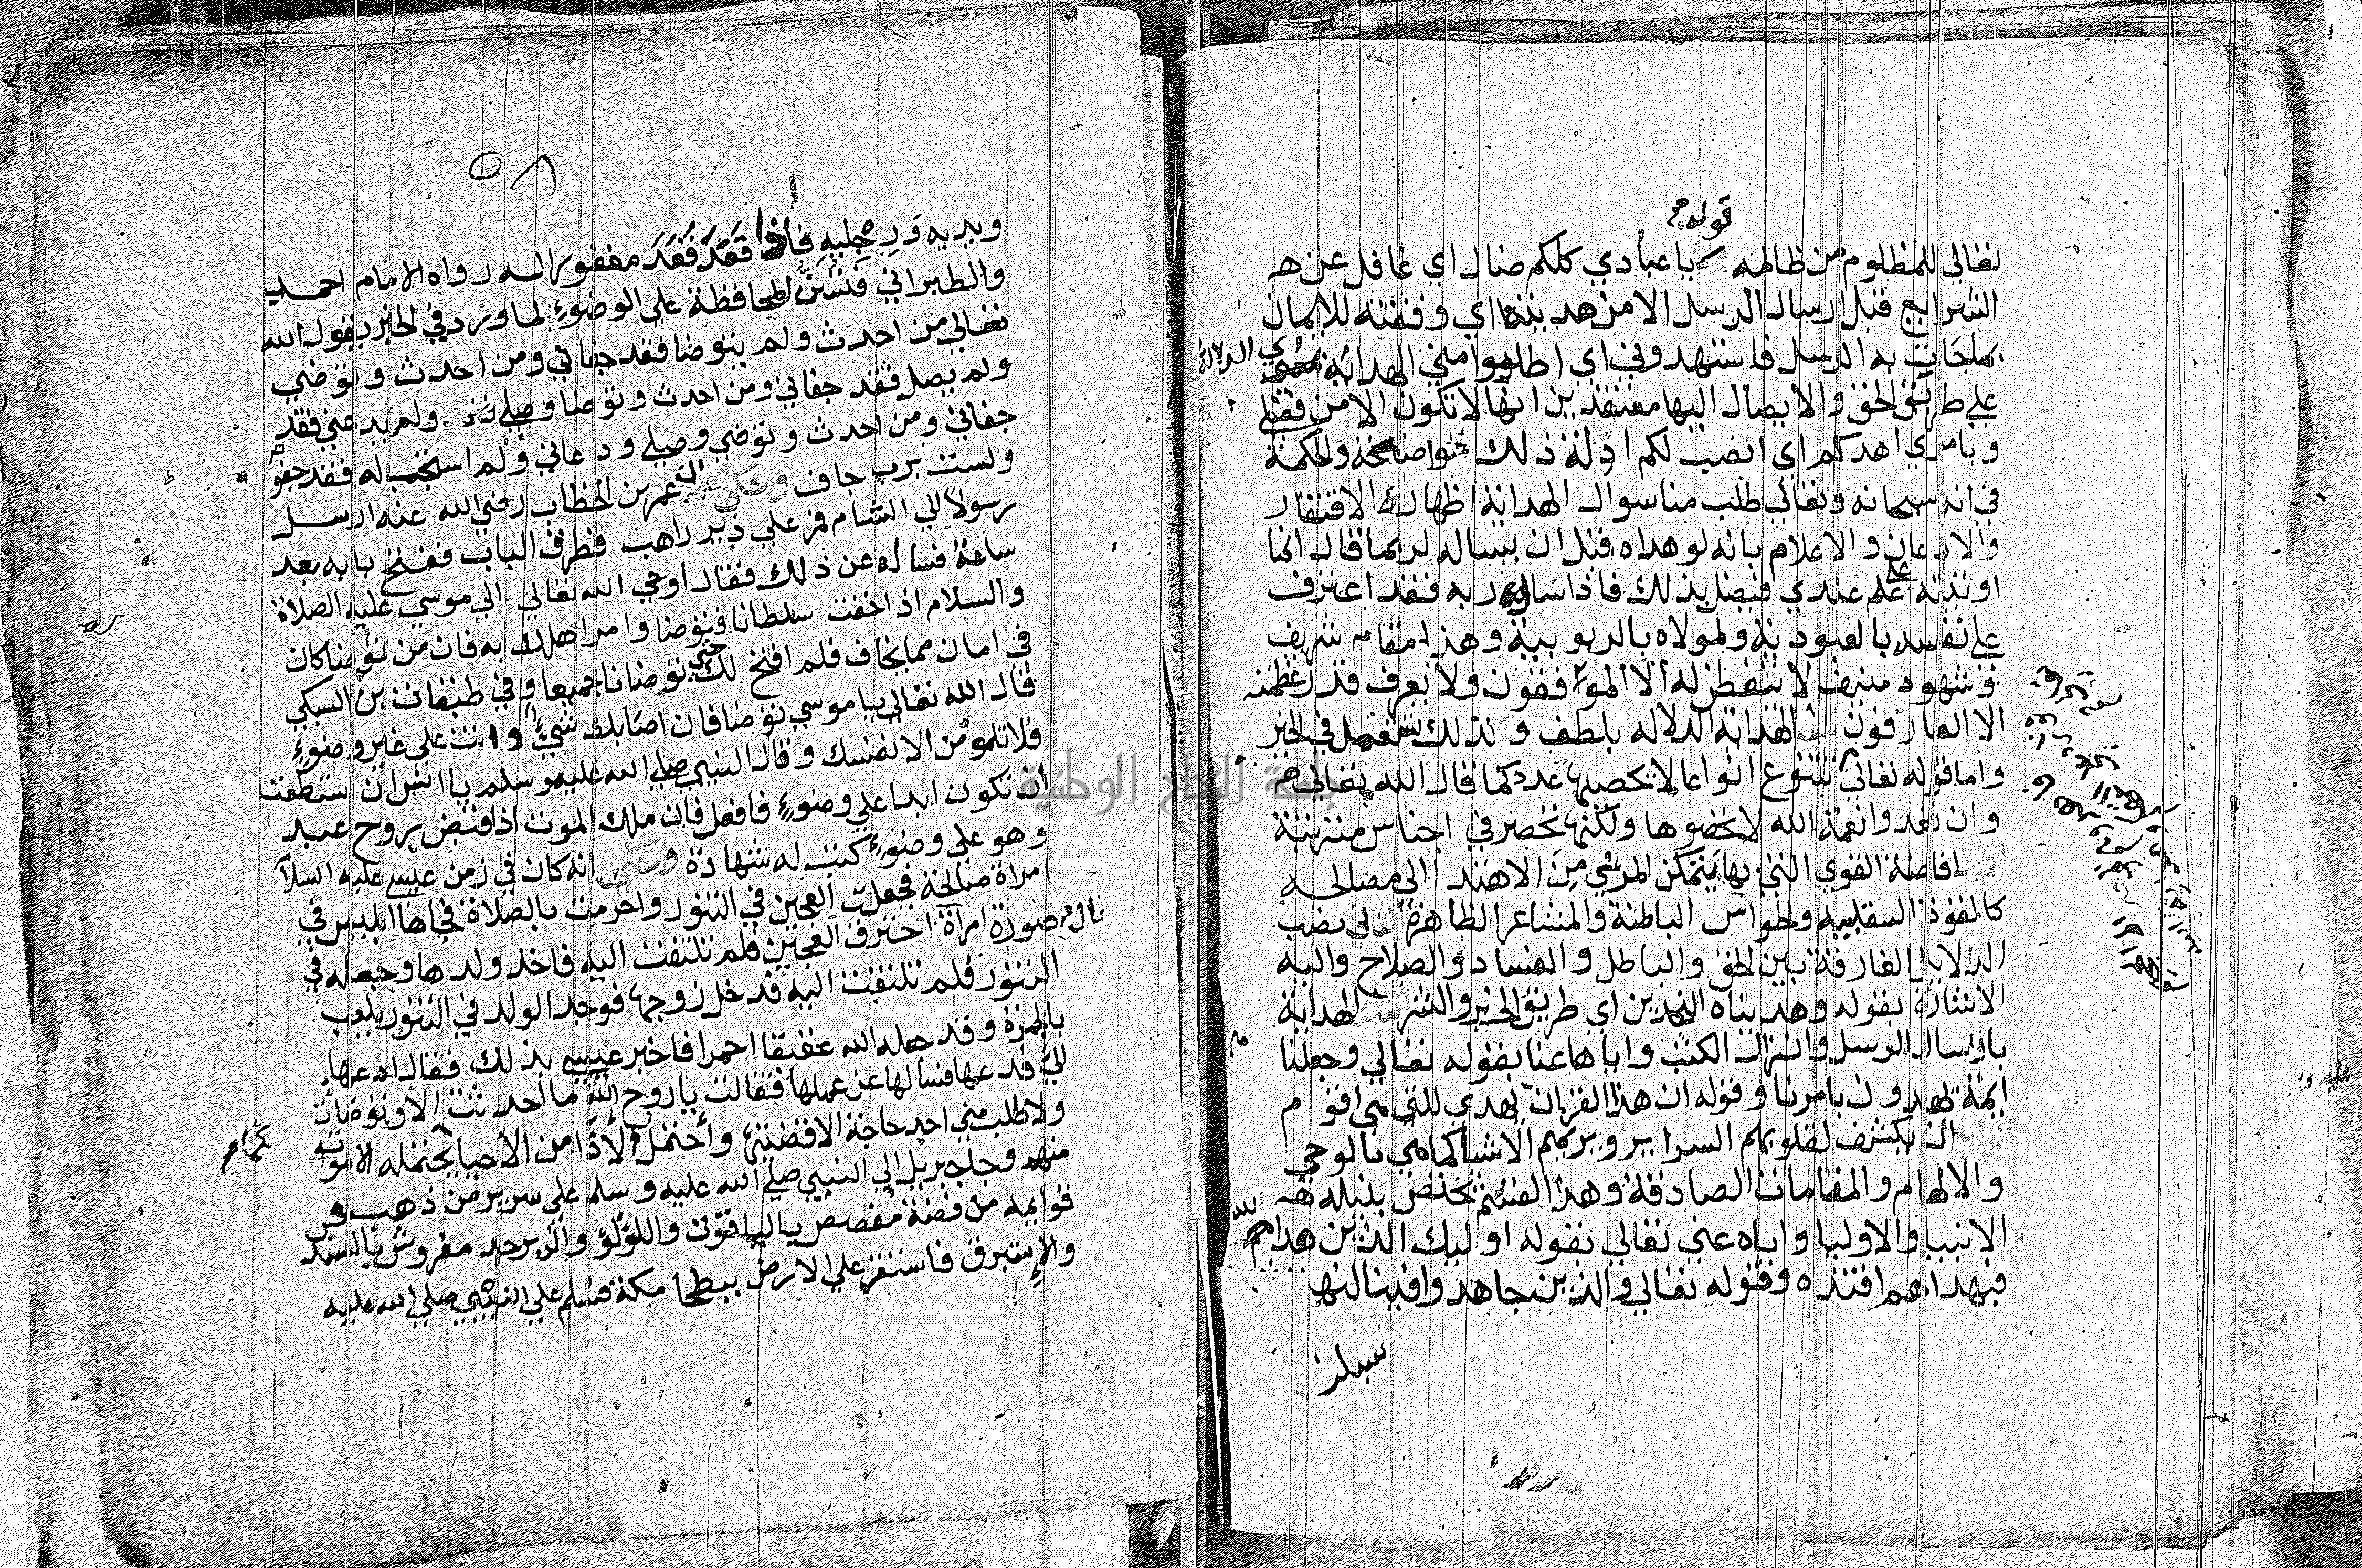 قوله
تعالي للمظلوم من ظالمه يا عبادي كلكم ضال اي غافل عن هـ
الشرايع قبل ارسال الرسل الا من هديته اي وفقته للايمان
بما جات به الرسل فاستهدوني اي اطلبوا مني الهداية بمعني الدلالة
علي طريق الحق والايصال اليها معتقدين انها لا تكون الا من فضلي
وبامري اهدكم اي انصب لكم ادلة ذلك واضحة والحكمة
في انه سبحانه وتعالي طلب منا سوال الهداية اظهار الافتقار
والاذعان والاعلام بانه لو هداه قبل ان يساله لربما قال انما
اوتيته علي علم عندي فيضل بذلك فاذا سال ربه فقد اعترف
علي نفسه بالعبودية ولمولاه بالربوبية وهذا مقام شريف
وشهود منيف لا يتفطن له الا الموفقون ولا يعرف قدر عظمته
الا العارفون الهداية الدلالة بلطف ولذلك تستعمل في الخير
واما قوله تعالي تتنوع انواعا لا تحصيها عدد كما قال الله تعالي
وان تعدوا نعمة الله لا تحصوها ولكنها تنحصر في اجناس مترتبة
افاضة القوي التي بها يتمكن المرء من الاهتدا الي مصالحه
كالقوة العقلية والحواس الباطنة والمشاعر الظاهرة الثاني نصب
الدلايل الفارقة بين الحق والباطل والفساد والصلاح واليه
الاشارة بقوله وهديناه النجدين اي طريق الخير والشر الهداية
بارسال الرسل وانزال الكتب واياها عنا بقوله تعالي وجعلنا
ايمة يهدون بامرنا وقوله ان هذا القران يهدي للتي هي اقوم
ان يكشف لقلوبهم السراير ويريهم الاشيا كما هي بالوحي
والالهام والمقامات الصادقة وهذا القسم يختص بنيله
الانبيا والاولياء واياه عني تعالي بقوله اوليك الذين هداهم الله
فبهداهم اقتده وقوله تعالي والذين جاهدوا فينا لنهد
سبلنا
٥٨
ويديه ورجليه فاذا قعد قعد مغفورا له رواه الامام احمد
والطبراني فتسن المحافظة علي الوضوء لما ورد في الخبر يقول الله
تعالي من احدث ولم يتوضا فقد جفاني ومن احدث وتوضي
ولم يصل فقد جفاني ومن احدث وتوضا وصلي ولم يدعني فقد
جفاني ومن احدث وتوضي وصلي ودعاني ولم استجب له فقد جفوته
ولست برب جاف وحكي ان عمر بن الخطاب رضي الله عنه ارسل
رسولا الي الشام فمر علي دير راهب فطرق الباب ففتح بابه بعد
ساعة فساله عن ذلك فقال اوحي الله تعالي الي موسي عليه الصلاة
والسلام اذا خفت سلطانا فتوضا وامر اهلك به فان من توضا كان
في امان مما يخاف فلم افتح لك حتي توضانا جميعا وفي طبقات بن السبكي
قال الله تعالي يا موسي توضا فان اصابك شيء وانت علي غير وضوء
فلا تلومن الا نفسك وقال النبي صلي الله عليه وسلم يا انس ان استطعت
ان تكون ابدا علي وضوء فافعل فان ملك الموت اذا قبض روح عبد
وهو علي وضوء كتب له شهادة وحكي انه كان في زمن عيسي عليه السلا
امراة صالحة فجعلت العجين في التنور واحرمت بالصلاة فجاها ابليس في
صورة امراة احترق العجين فلم تلتفت اليه فاخذ ولدها وجعله في
التنور فلم تلتفت اليه فدخل زوجها فوجد الولد في التنور يلعب
بالجمرة وقد جعله الله عقيقا احمرا فاخبر عيسي بذلك فقال ادعها
لي فدعها فسالها عن عملها فقالت يا روح الله ما احدثت الا وتوضات
ولا طلب مني احد حاجة الا قضيتها واحتمل الاذا من الاحيا كما يحتمله الاموات
منهم وجا جبريل الي النبي صلي الله عليه وسلم علي سرير من ذهب
قوايمه من فضة مفصص بالياقوت واللؤلؤ والزبرجد مفروش بالسند
والاستبرق فاستقر علي الارض ببطحا مكة فسلم علي النبي صلي الله عليه